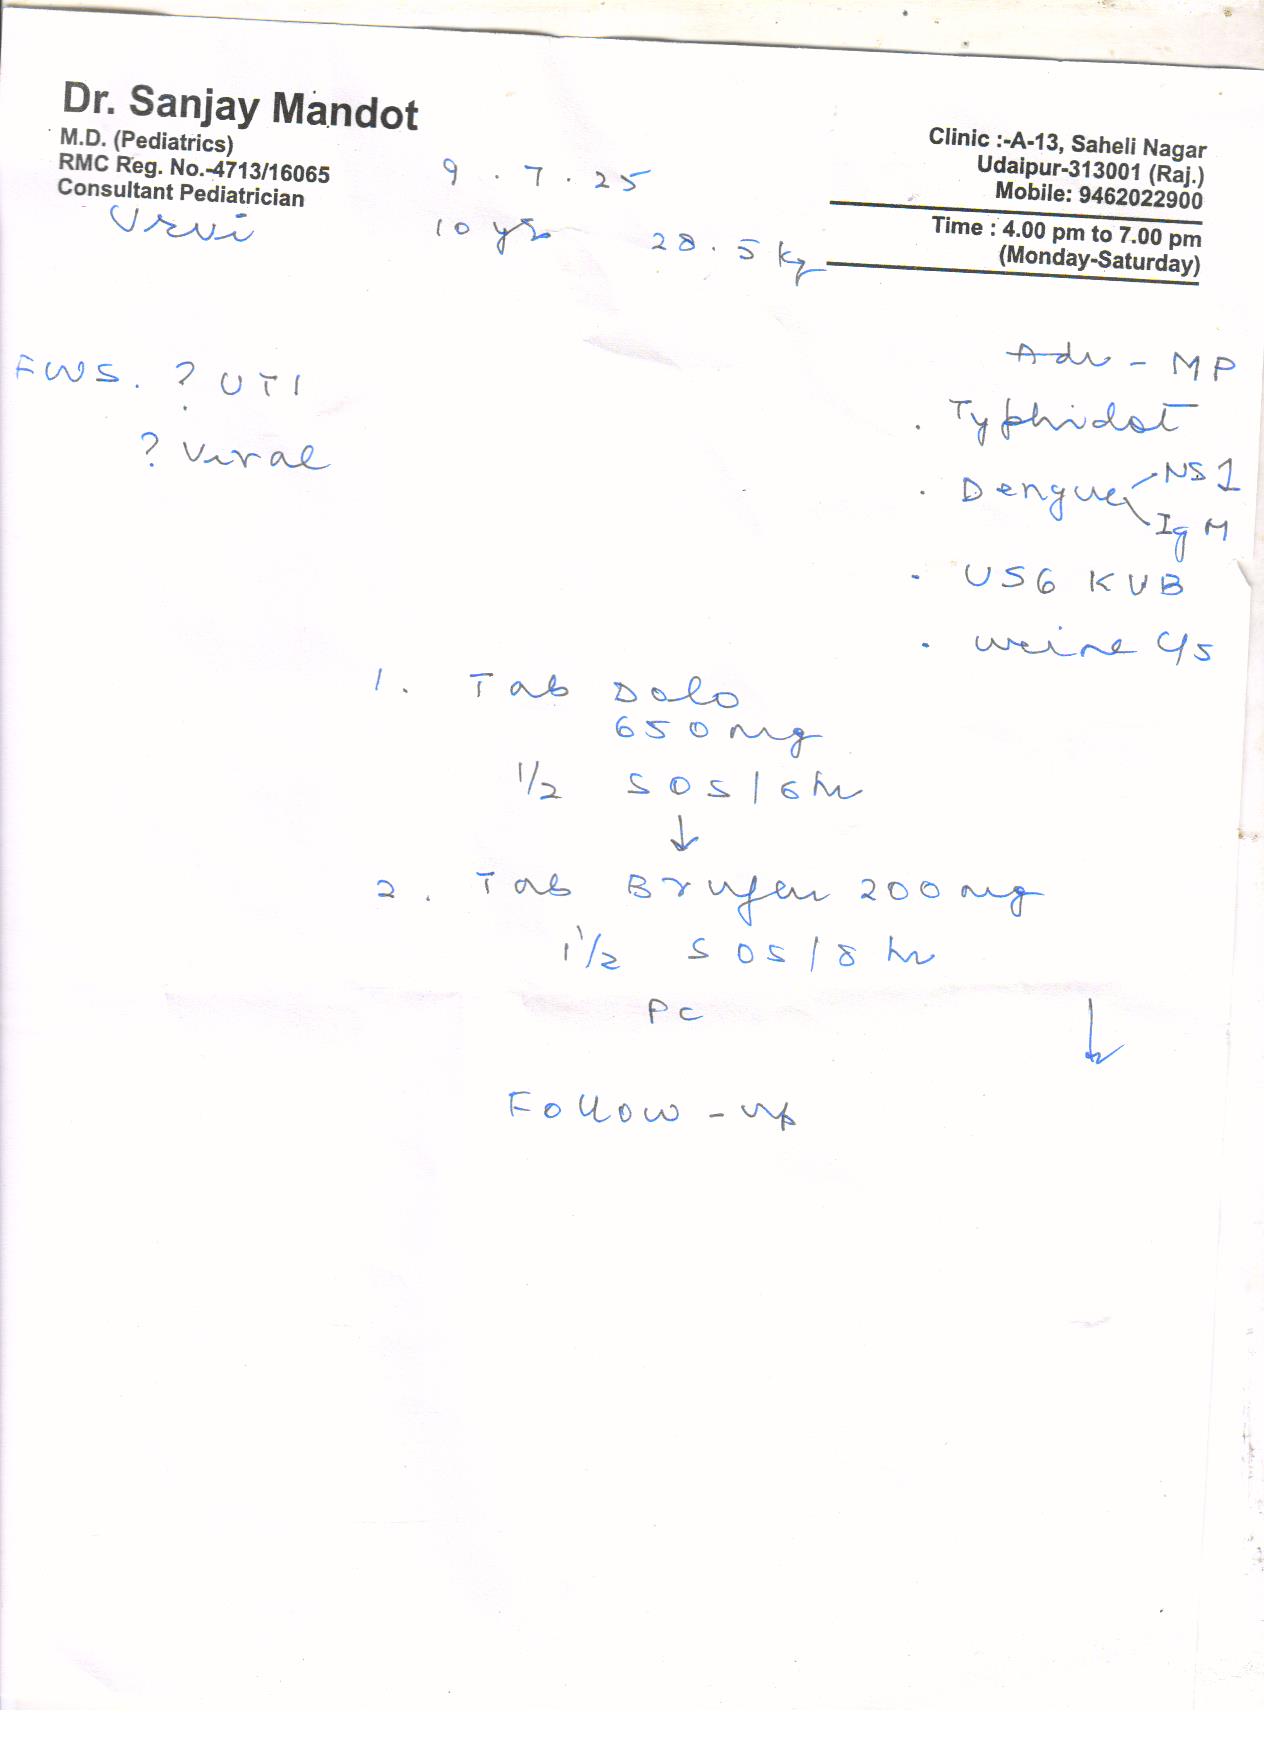 Dr. Sanjay Mandot
M.D. (Pediatrics)
RMC Reg. No.-4713/16065
Consultant Pediatrician
Clinic :-A-13, Saheli Nagar
Udaipur-313001 (Raj.)
Mobile: 9462022900
Time : 4.00 pm to 7.00 pm
(Monday-Saturday)
9.7.25
Urvi 10 yrs 28.5 kg
FWS. ? UTI
? Viral
Adv - MP
. Typhidot
. Dengue NS1
IgM
. USG KUB
. Urine C/S
1. Tab Dolo
650 mg
1/2 SOS/6 hr
↓
2. Tab Brufen 200 mg
1 1/2 SOS/8 hr
PC
↓
Follow-up